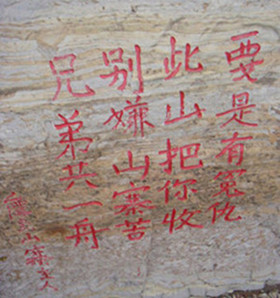 要是有冤仇
此山把你收
别嫌山寨苦
兄弟共一舟
山寨主人